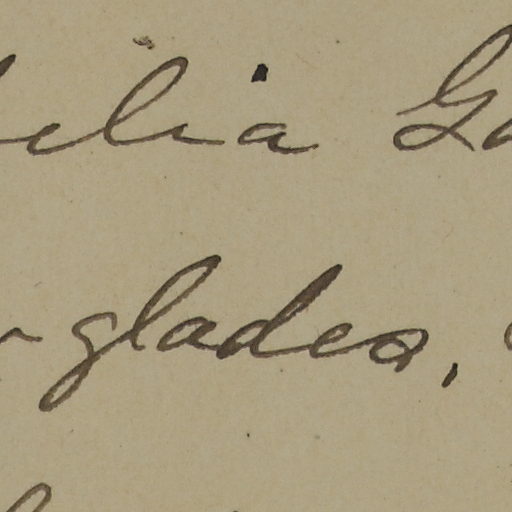 elia Ga
glades,